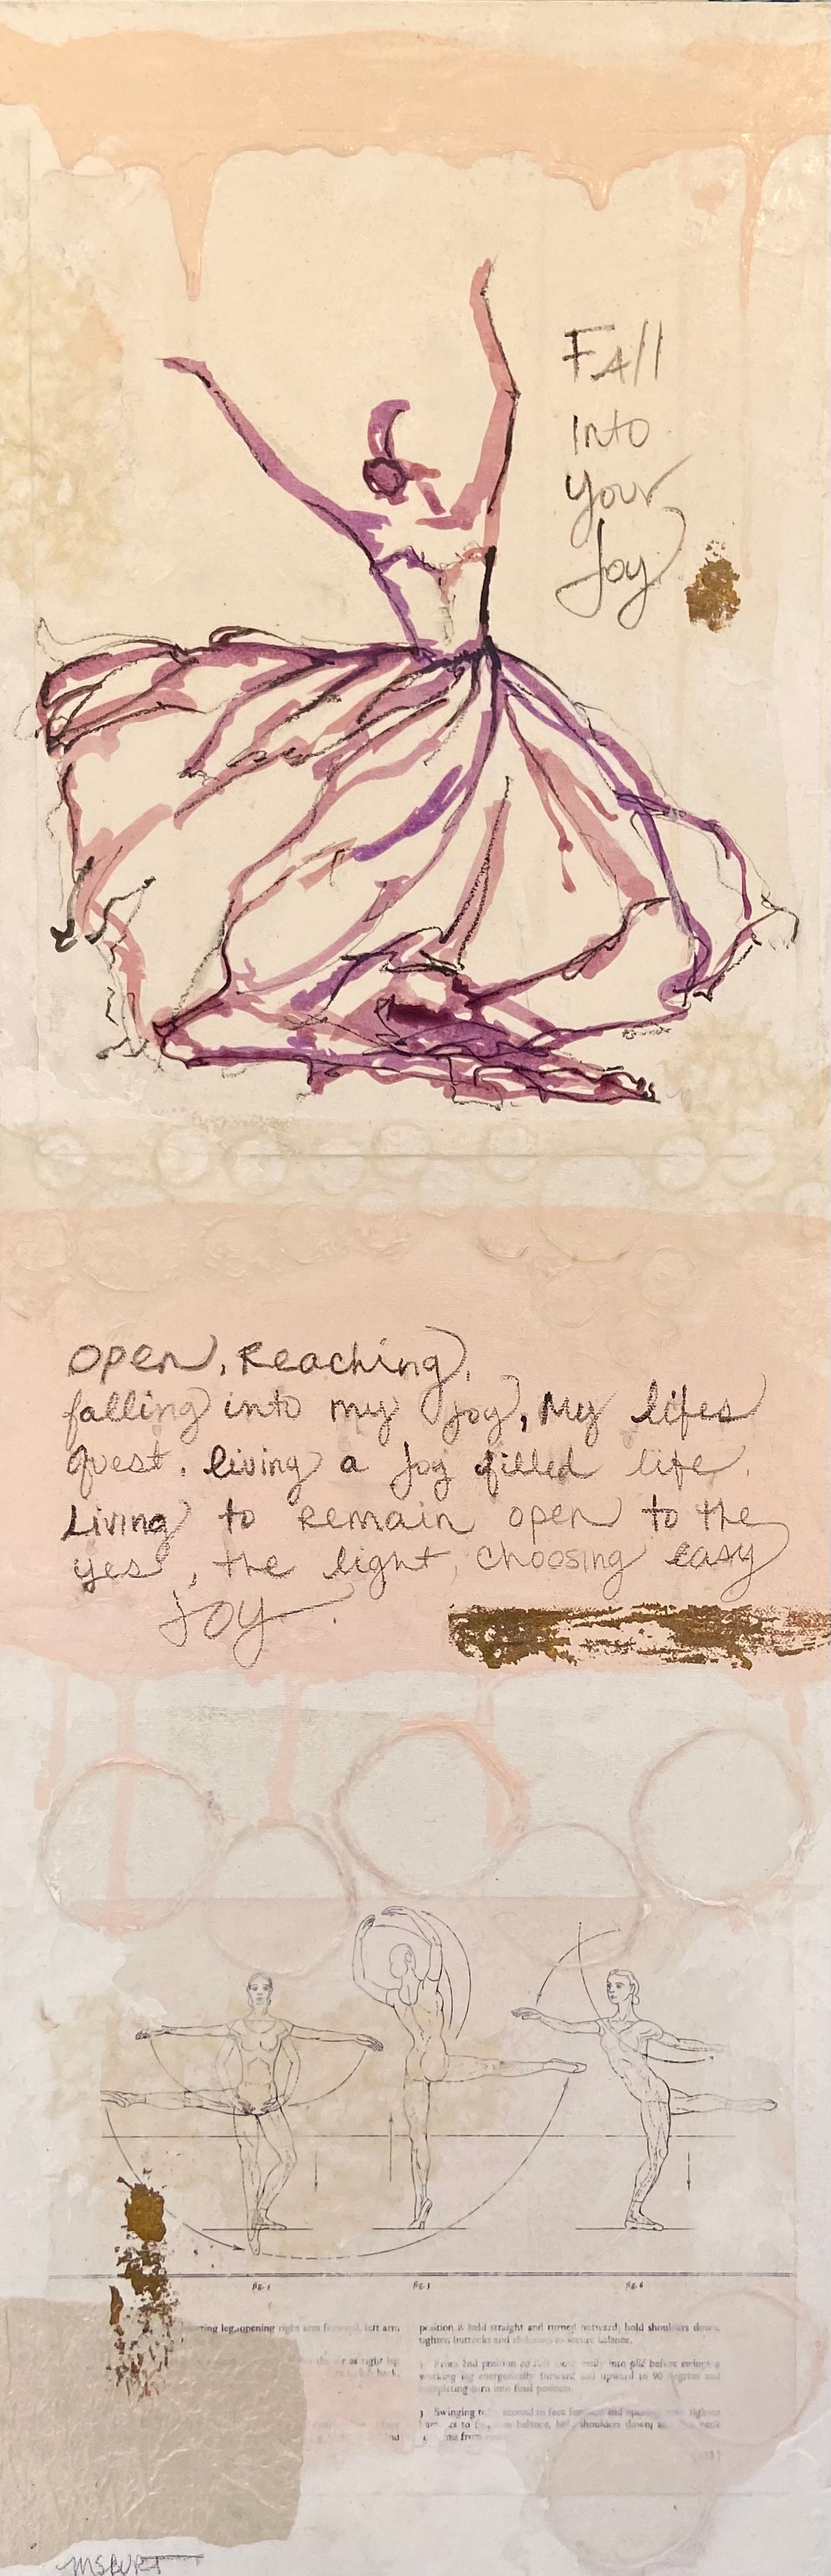 Fall
Into
Your
Joy
Open, Reaching,
falling into my joy, My lifes
quest. living a joy filled life.
Living to remain open to the
yes, the light, choosing easy
Joy.
fig. 5
fig. 6
leg, opening right arm left arm
position is held straight and turned outward; hold shoulders down,
tighten buttocks and abdomen to secure balance.
as right leg
From 2nd position into plié before swinging
working leg energetically forward and upward to 90 degrees and
completing turn into final position.
3 Swinging around to face and opening tighten
balance, shoulders down; neck
and
from
MSBURT